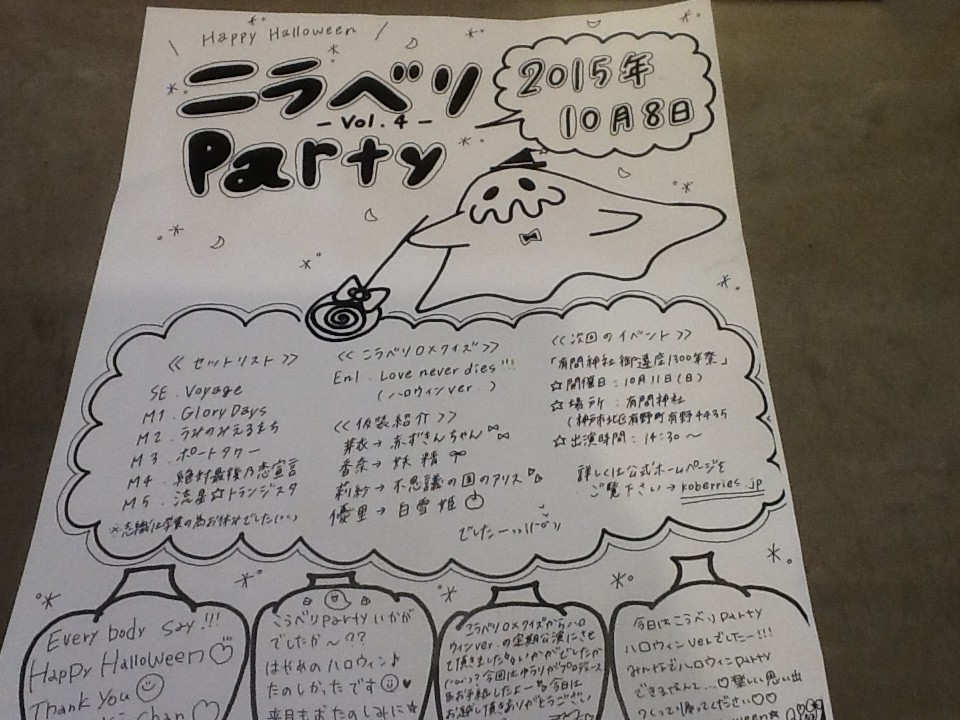 Happy Halloween
ニラベリ
- Vol.4 -
Party
2015年
10月8日
<< セットリスト >>
SE . Voyage
M1 . Glory Days
M2 . うみのみえるまち
M3 . ポートタワー
M4 . 絶対最後乃恋宣言
M5 . 流星☆トランジスタ
※志織は学業の為お休みでした
<< こラベリO×クイズ >>
En1 . Love never dies !!!
(ハロウィンver.)
<< 仮装紹介 >>
芽衣→赤ずきんちゃん
香奈→妖精
莉紗→不思議の国のアリス
優里→白雪姫
でしたー
<< 次回のイベント >>
「有間神社御遷座1300年祭」
☆開催日:10月11日(日)
☆場所:有間神社
(神戸市北区有野町有野4435
☆出演時間:14:30~
詳しくは公式ホームページを
ご覧下さい→koberries.jp
Every body say!!!
Happy Halloween♡
Thank You
Chan
こうべりpartyいかが
でしたか~??
はやめのハロウィン♪
たのしかったです
来月もおたのしみに☆
こうベリO×クイズからハロ
ウィンver.の定期公演にさせ
て頂きましたがいかがでしたか
?今回はゆうりがプロデュース
お手紙したよー 今日は
お越し頂きありがとうござい
今日はこうべりparty
ハロウィンverでしたー!!!
みんなでハロウィンparty
できるなんて...♡楽しい思い出
つくって帰ってください♡♡